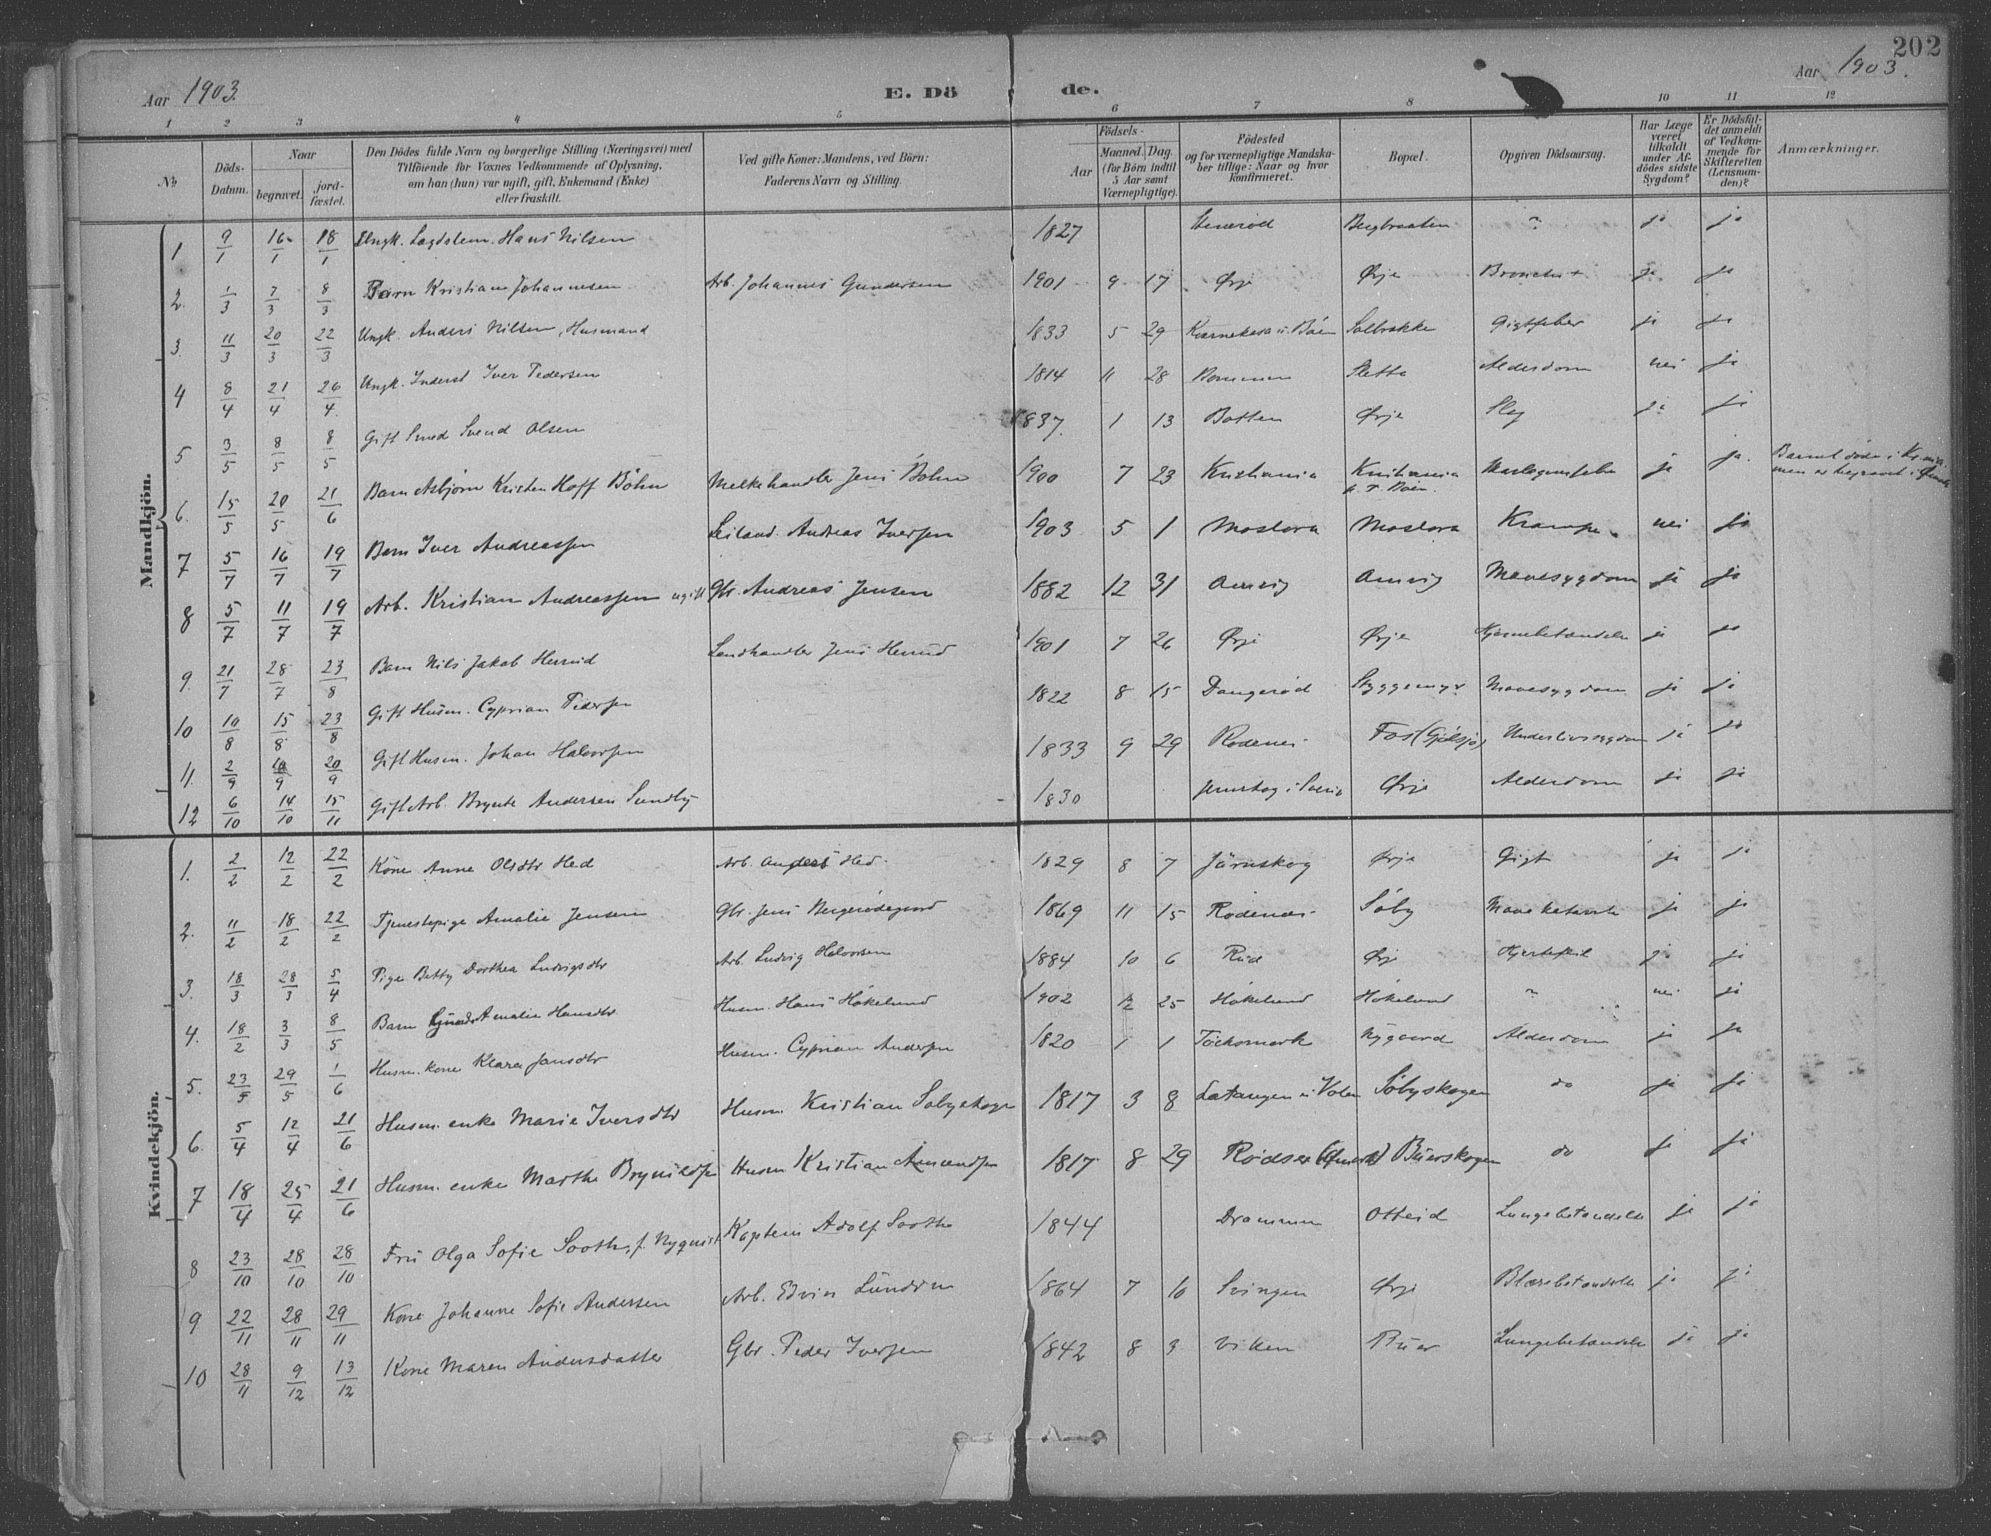 202
Aar 1903. E. Dö de. Aar 1903.
1 2 3 4 5 6 7 8 10 11 12
№ Döds-Datum. Naar begravet. jord-fæstet. Den Dödes fulde Navn og borgerlige Stilling (Næringsvei) med Tilföiende for Voxnes Vedkommende af Oplysning, om han (hun) var ugift, gift, Enkemand (Enke) eller fraskilt. Ved gifte Koner: Mandens, ved Börn: Faderens Navn og Stilling. Födsels- Aar Maaned. Dag. (for Börn indtil 5 Aar samt Værnepligtige). Födested og for værnepligtige Mandskaber tillige: Naar og hvor konfirmeret. Bopæl. Opgiven Dödsaarsag. Har Læge været tilkaldt under Afdödes sidste Sygdom? Er Dödsfaldet anmeldt af Vedkommende for Skifteretten (Lensmanden)? Anmærkninger.
Mandkjön.
1 9/1 16/1 18/1 Ungk. Lægdslem Hans Nilsen 1827 ja ja
2. 1/3 7/3 8/3 Barn Kristian Johannesen Arb. Johannes Gundersen 1901 9 17 Ørje Ørje ja ja
3. 11/3 20/3 22/3 Ungk. Anders Nilsen, Husmand 1833 5 29 Solbrække Gigtfeber ja ja
4 8/4 21/4 26/4. Ungk. Inderst Iver Pedersen 1814 11 28 Sletta Alderdom nei ja
5 3/5 8/5 8/5 Gift Smed Svend Olsen 1837. 1 13 Botten Ørje Slag ja ja
6. 15/5 20/5 21/6 Barn Asbjørn Kristen Hoff Böhn Melkehandler Jens Bohn 1900 7 23 Kristiania Kristiania ja ja. Barnet döde i
men er begravet i
7 5/7 16/7 19/7 Barn Iver Andreassen Leiland. Andreas Iversen 1903 5 1 Mostora Mostora Krampe. nei ja
8 5/7 11/7 19/7 Arb. Kristian Andreassen ugift Gbr. Andreas Jensen 1882 12 31 Aarvig Aarvig Mavesygdom ja ja
9. 21/7 28/7 23/8 Barn Nils Jakob Herrud Landhandler Jens Herrud 1901 7 26 Ørje Ørje Hjernebetændelse ja ja
10 10/8 15/8 23/8 Gift Husm. Cyprian Pedersen 1822 8 15 Dangerød Styggemyr Mavesygdom ja ja
11. 2/9 /9 20/9 Gift Husm. Johan Halvorsen 1833 9 29 Rødenes Fos (Gjølsjø) Underlivssygdom ja ja
12 6/10 14/10 15/11 Gift Arb. Brynte Andersen Sundby 1830 Jernskog i Sverig Ørje Alderdom ja ja
Kvindekjön.
1. 2/2 12/2 22/2 Kone Anne Olsdtr Hed Arb. Anders Hed. 1829 8 7 Järnskog Ørje Gigt ja ja
2. 11/2 18/2 22/2 Tjenestepige Amalie Jensen Gbr. Jens Bergerødegaard 1869 11 15 Rødenes Søby ja ja
3. 18/3 28/3 5/4 Pige Betty Dorthea Ludvigsdtr Arb. Ludvig Halvorsen 1884 10 6 Rud Ørje Hjertefeil ja ja
4. 18/2 3/3 8/5 Barn Amalie Hansdtr Husm. Hans Høkelund 1902 12 25 Høkelund Høkelund " nei ja
5. 23/5 29/5 1/6 Husm. kone Klara Jansdtr Husm. Cyprian Andersen 1820 1 1 Töcksmark Nygaard Alderdom ja ja
6. 5/4 12/4 21/6 Husm. enke Marie Iversdtr Husm. Kristian Søbyskogen 1817 3 8 Søbyskogen do ja ja
7 18/4 25/4 21/6 Husm. enke Marthe Brynildsen Husm Kristian Amundsen 1817 8 29 Buerskogen do ja ja
8 23/10 28/10 28/10 Fru Olga Sofie Sooth, f. Nyquist Kaptein Adolf Sooth 1844 Drammen Otteid Lungebetændelse ja ja
9 22/11 28/11 29/11 Kone Johanne Sofie Andersen Arb. Edvin 1864 7 10 Svingen Ørje Blærebetændelse ja ja
10 28/11 9/12 13/12 Kone Maren Andersdatter Gbr. Peder Iversen 1842 8 3 Viken Buer Lungebetændelse ja ja